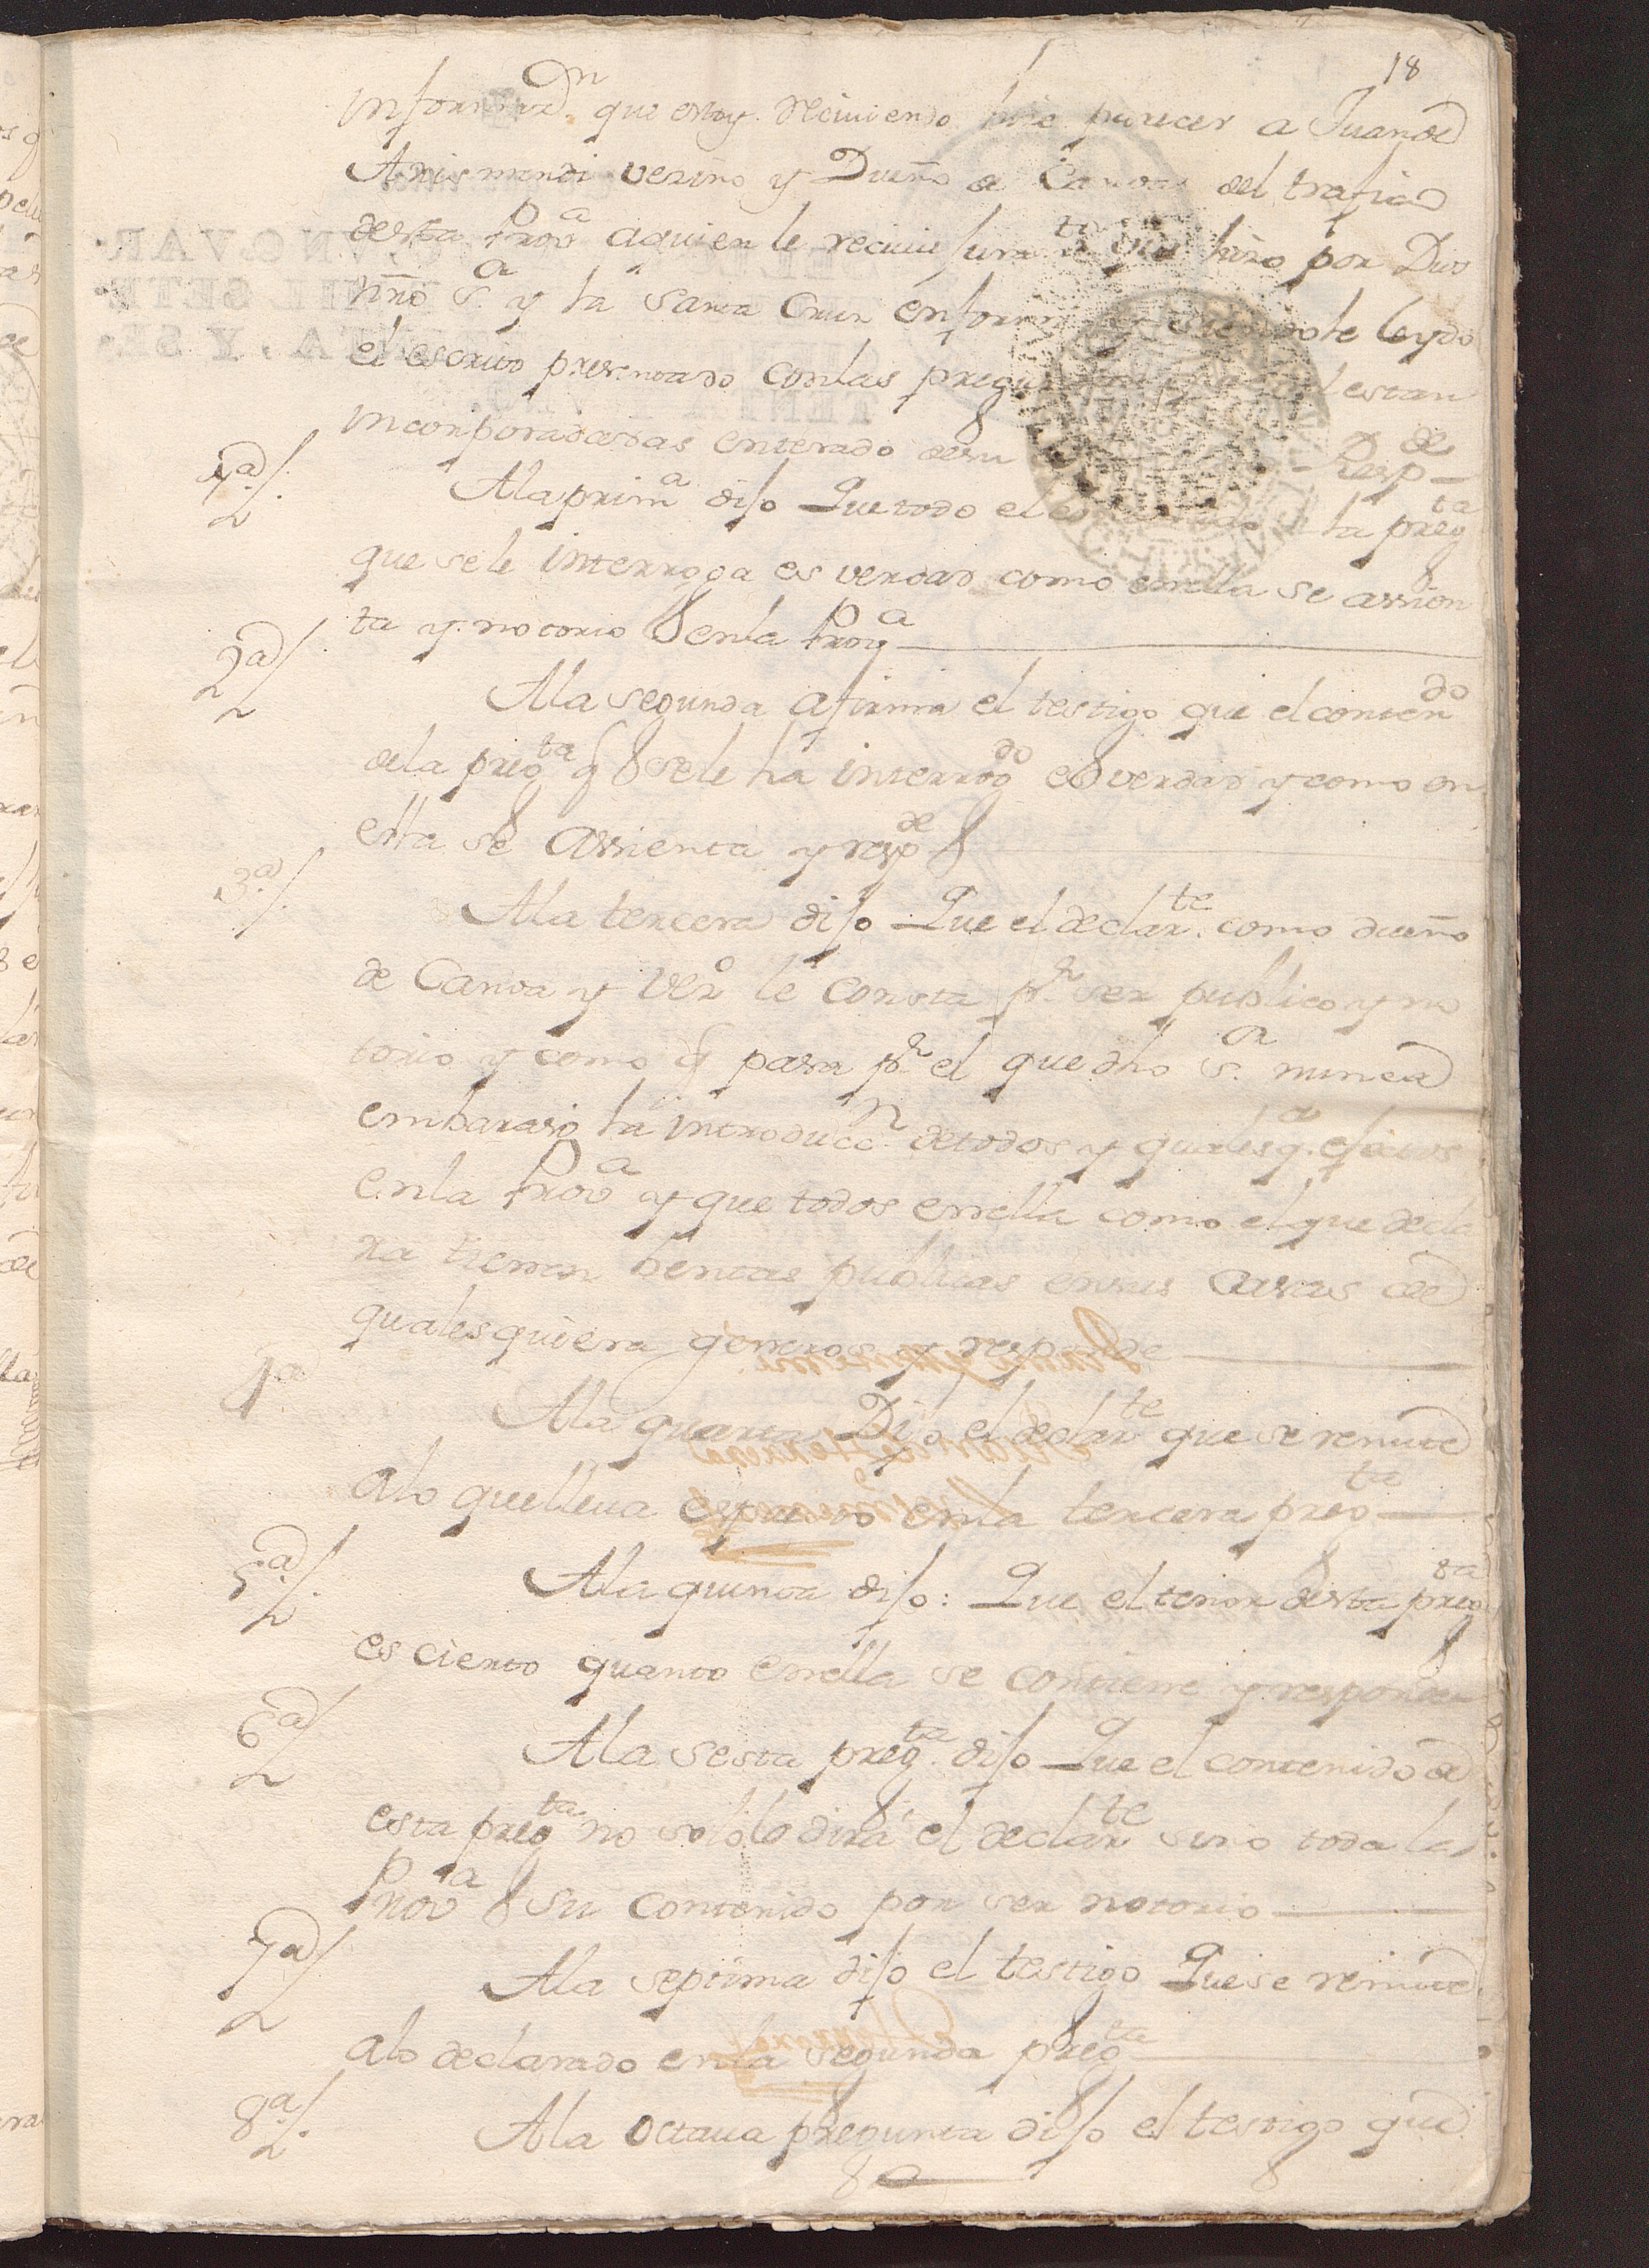 18
Informac.on que estoy reciviendo hice parecer a Juan de
Arismendi vezino y Dueño de Canoas del trafico
desta Prov.a a quien le recivi juram.to que hizo por Dios
nrõ S.r y la Santa Cruz en forma siendole leydo
el escrito presentado con las preguntas estan
incorporadas enterado de su Resp.de
1.a/. A la prim.a dijo Que todo el contenido de la preg.ta
que se le interroga es verdad como en ella se assien
ta y notorio en la Prov.a
2.a/ A la segunda afirma el testigo que el conten.do
de la preg.ta q se le ha interrog.do es verdad y como en
ella se assienta y resp.de
3.a/. A la tercera dijo Que el declar.te como dueño
de Canoa y vez.o le consta p.r ser publico y no
torio y como q pasa p.r el que dho S.r nunca
embarazo la introducc.n de todos y qualesq.a efectos
en la Prov.a y que todos en ella como el que decla
ra tienen ventas publicas en sus casas de
qualesquiera generos y responde
4.a A la quarta Dijo el declar.te que se remite
a lo que lleva expuesto en la tercera preg.ta
5.a/. A la quinta dijo: Que el tenor desta preg.ta
es cierto quanto en ella se contiene y responde
6.a/ A la sesta preg.ta dijo Que el contenido de
esta preg.ta no solo lo dirá el declar.te sino toda la
Prov.a su contenido por ser notorio
7.a/ A la septima dijo el testigo Que se remite
a lo declarado en la segunda preg.ta
8.a/. A la octava pregunta dijo el testigo que